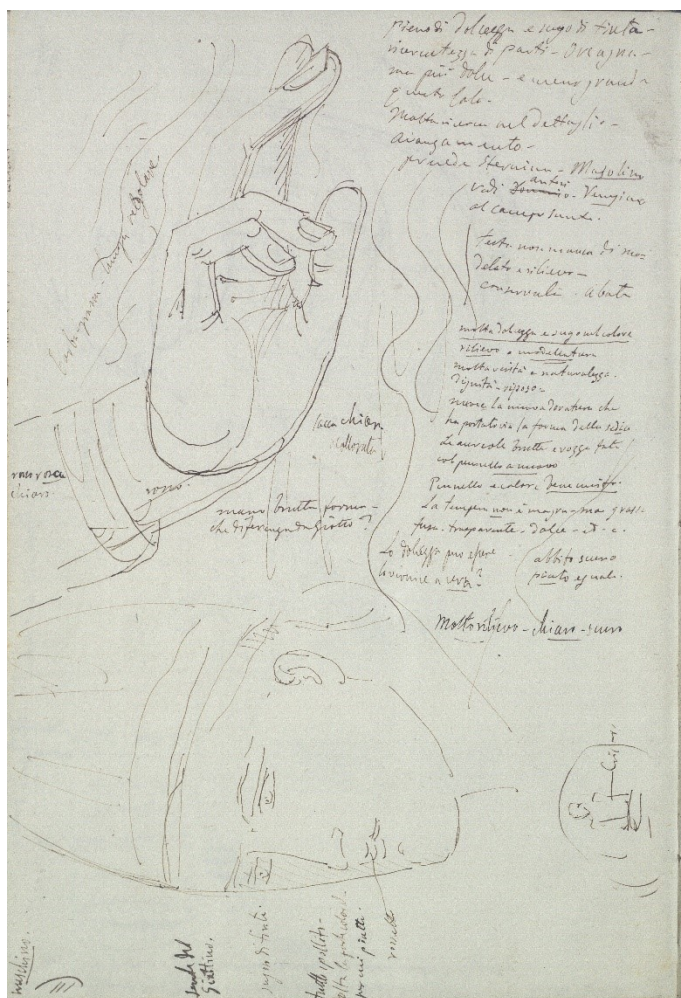 pieno di dolcezza e sugo di tinta -
ricercatezza di parti - Orcagna -
ma più dolce - e meno grande
questo lato -
Molta ricerca nel dettaglio -
procede Starnina - Masolino
vedi antico Veneziano
al campo santo.
testa non manca di mo-
dellato e rilievo -
conservata - abate
molta dolcezza e sugo nel colore
rilievo e modellatura
molta verità e naturalezza.
dignità - riposo -
nuoce la nuova doratura che
ha portato via la forma della sedia
Le aureole brutte e rozze fatte
col pennello a nuovo
Pennello e colore bene unito.
La tempera non è magra - ma grassa
fusa - trasparente - dolce - et. c.
La dolcezza può essere
vernice a uova?
abbito scuro
piatto eguale.
Molto rilievo - chiaro - scuro
tempera regolare
lacca chiara
rosso rosa
chiaro
rosso.
mano brutta forma -
che differenza da Giotto?
meschino.
scuola del
Giottino.
sugo di tinti.
rossetto